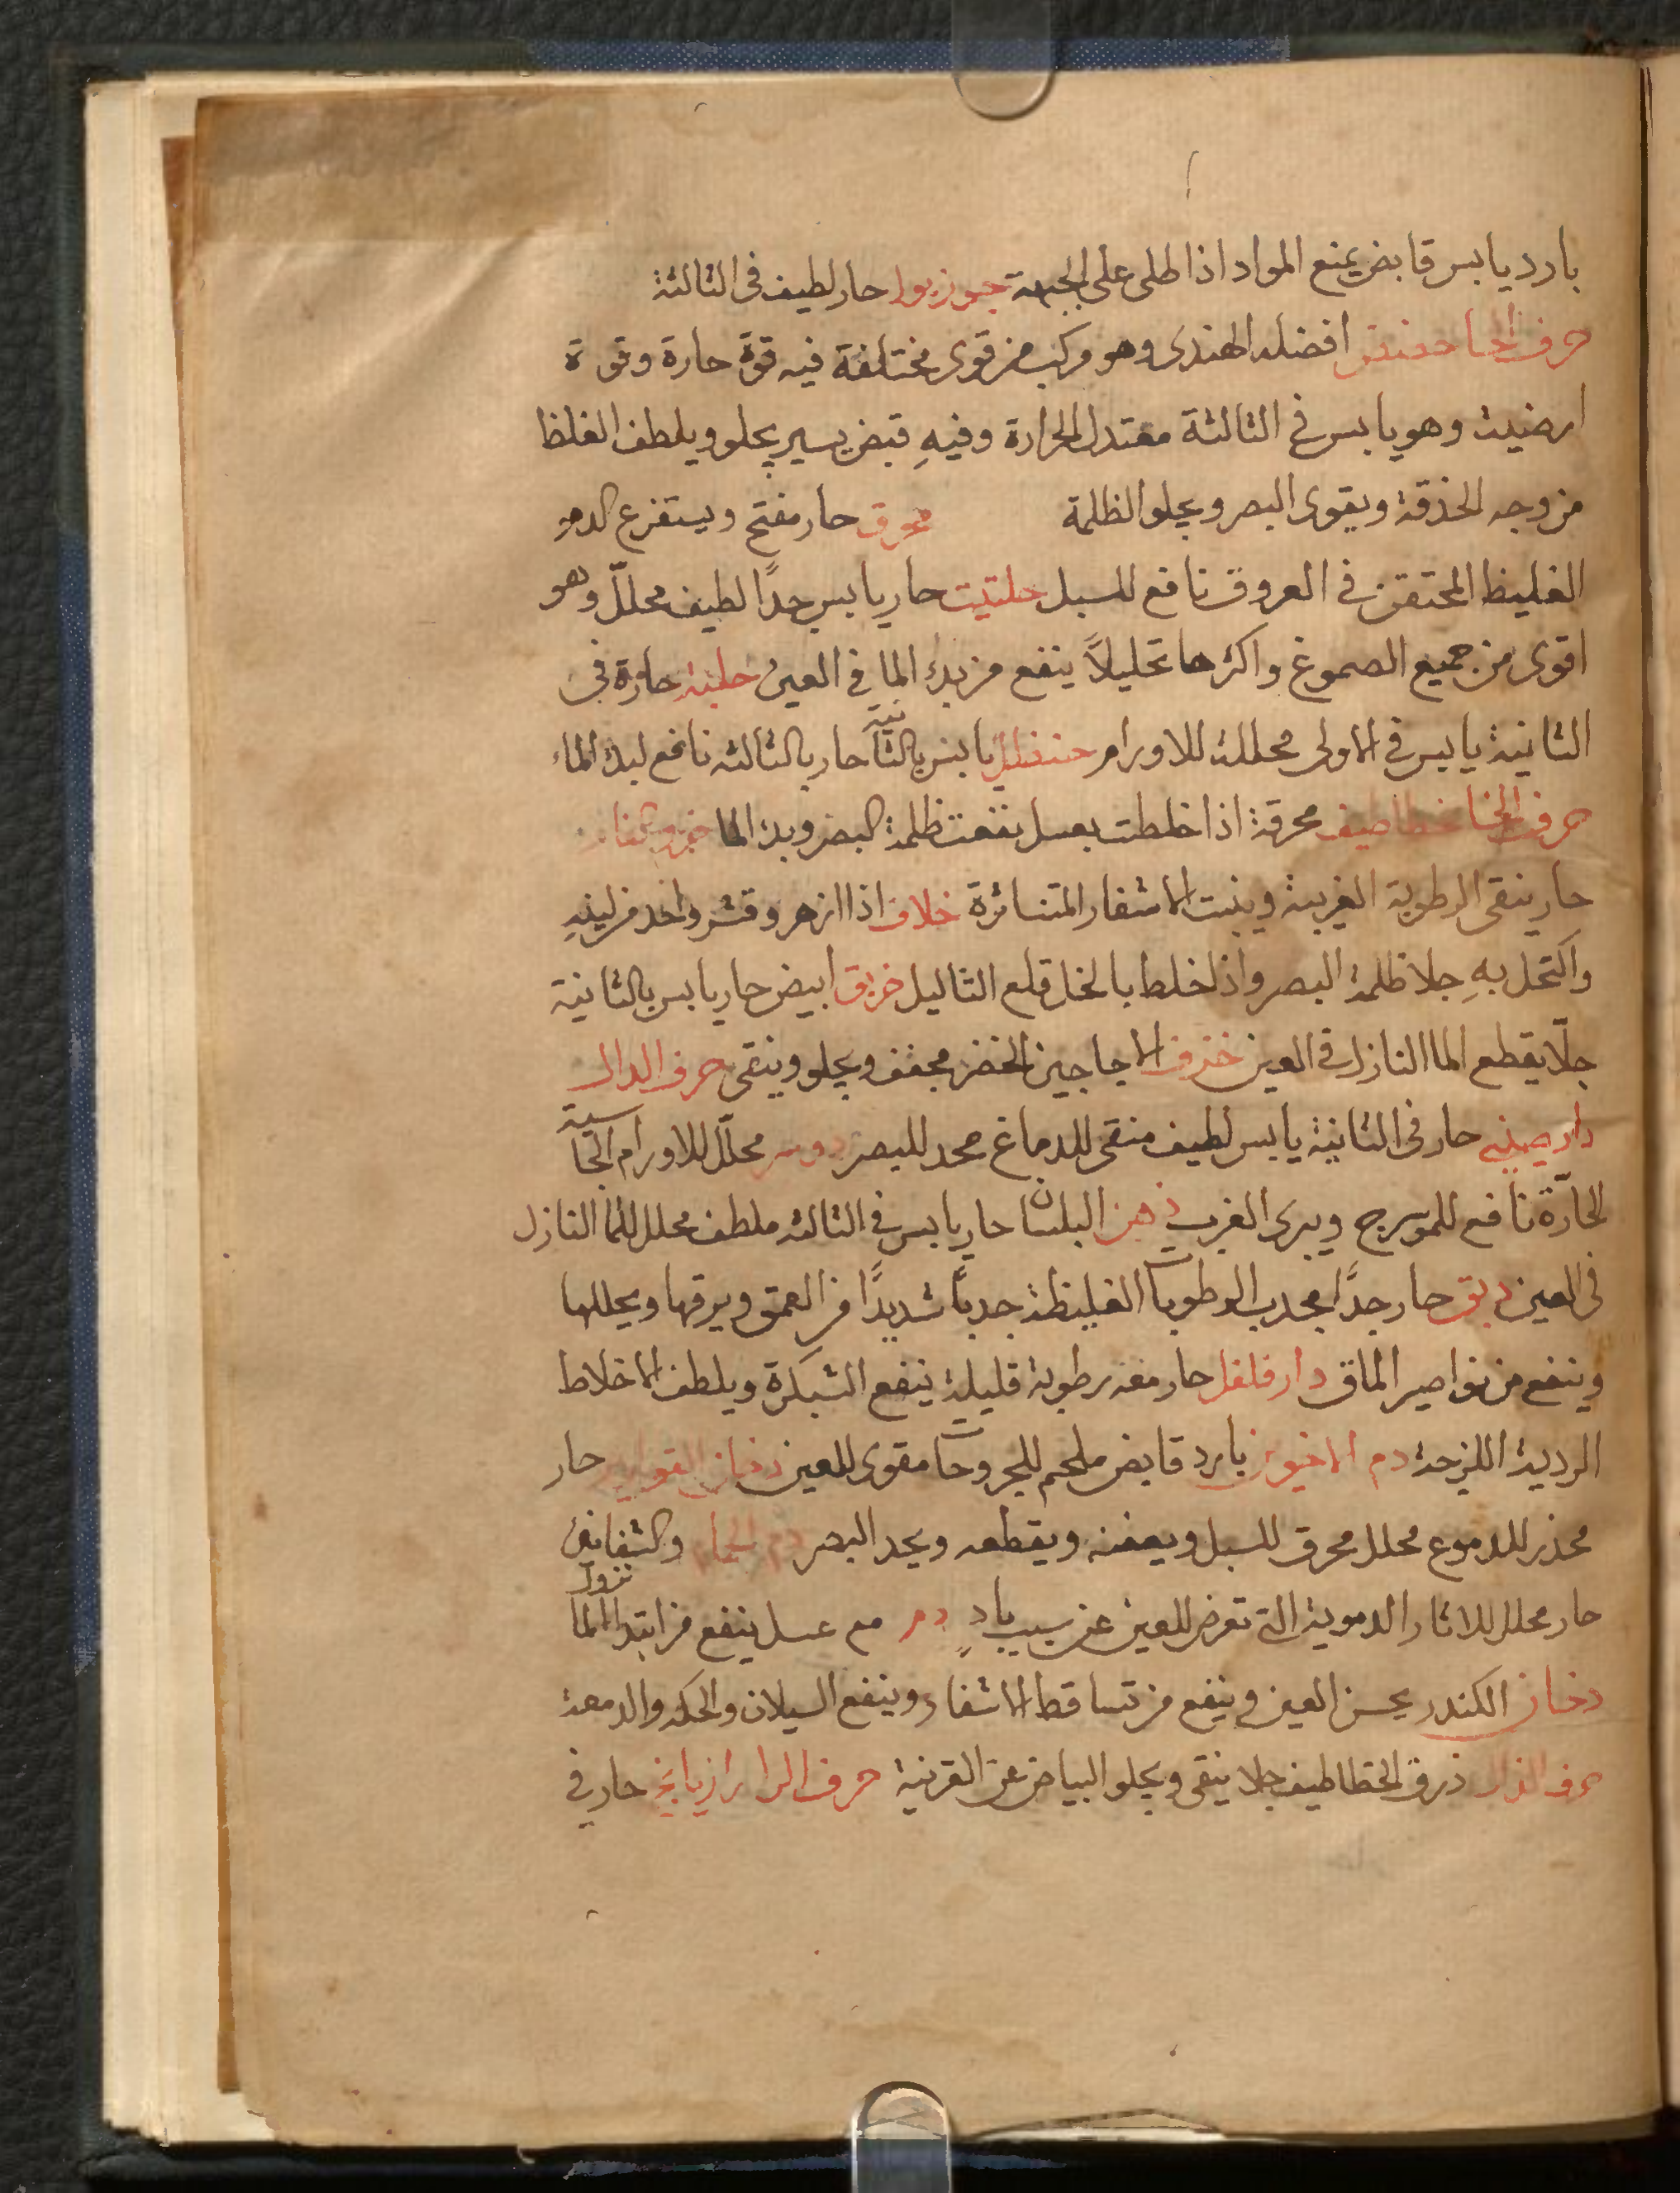 بارد يابس قابض يمنع المواد اذا طلى على الجبهة جوزبوا حار لطيف فى الثالثة
حرف الحا حضض افضله الهندى وهو مركب من قوى مختلفة فيه قوة حارة وقوة
ارضية وهو يابس فى الثالثة معتدل الحرارة وفيهِ قبض يسير يجلو ويلطف الغلظ
من وجه الحذقة ويقوى البصر ويجلو الظلمة حار مفتح ويستفرغ الدم
الغليظ المحتقن فى العروق نافع للسبل حلتيت حار يابس جدًا لطيف محللّ وهو
اقوى من جميع الصموغ واكثرها تحليلاً ينفع من بدؤ الما فى العين حلبة حارة فى
الثانية يابس فى الاولى محللة للاورام حنظل يابس بالثانية حار بالثالثه نافع لبدؤ الماء
حرف الخا خطاطيف محرقة اذا خلطت بعسل نفعت ظلمة البصر وبدؤ الما
حار ينقى الرطوبة الغريبة وينبت الاشفار المتناثرة خلاف اذا ازهر وقشر واخذ من لبنهِ
واكتحل بهِ جلا ظلمة البصر واذا خلط بالخل قلع الثاليل خربق ابيض حار يابس بالثانية
جلّا يقطع الما النازل فى العين خزف الاجاجين الخضر مجفف ويجلو وينقى حرف الدال
دار صينى حار فى الثانية يابس لطيف منقى للدماغ محد للبصر دوسر محللّ للاورام الجاسية
الحارّة نافع للموسرج ويبرى الغرب دهن البلسان حار يابس فى الثالثه ملطف محلل للما النازل
فى العين دبق حار جدًّا يجدب الرطوبات الغليظة جدبًا شديدًا من العمق ويرقها ويحللها
وينفع من نواصير الماق دار فلفل حار معه رطوبة قليلة ينفع الشبكرة ويلطف الاخلاط
الردية اللزجة دم الاخوين بارد قابض ملحم للجروحات مقوى للعين دخان القوارير حار
محذر للدموع محلل محرق للسبل ويعفنه ويقطعه ويحد البصر دم الحمام والشفانين
حار محلل للاثار الدموية التى تعرض للعين عن سبب بادٍ دم مع عسل ينفع من ابتدا نزول الما
دخان الكندر يحسن العين وينفع من تساقط الاشفار وينفع السيلان والحكه والدمعة
حرف الذال ذرق الخطاطيف جلا ينقى ويجلو البياض عن القرنية حرف الرا رازيانج حار فى